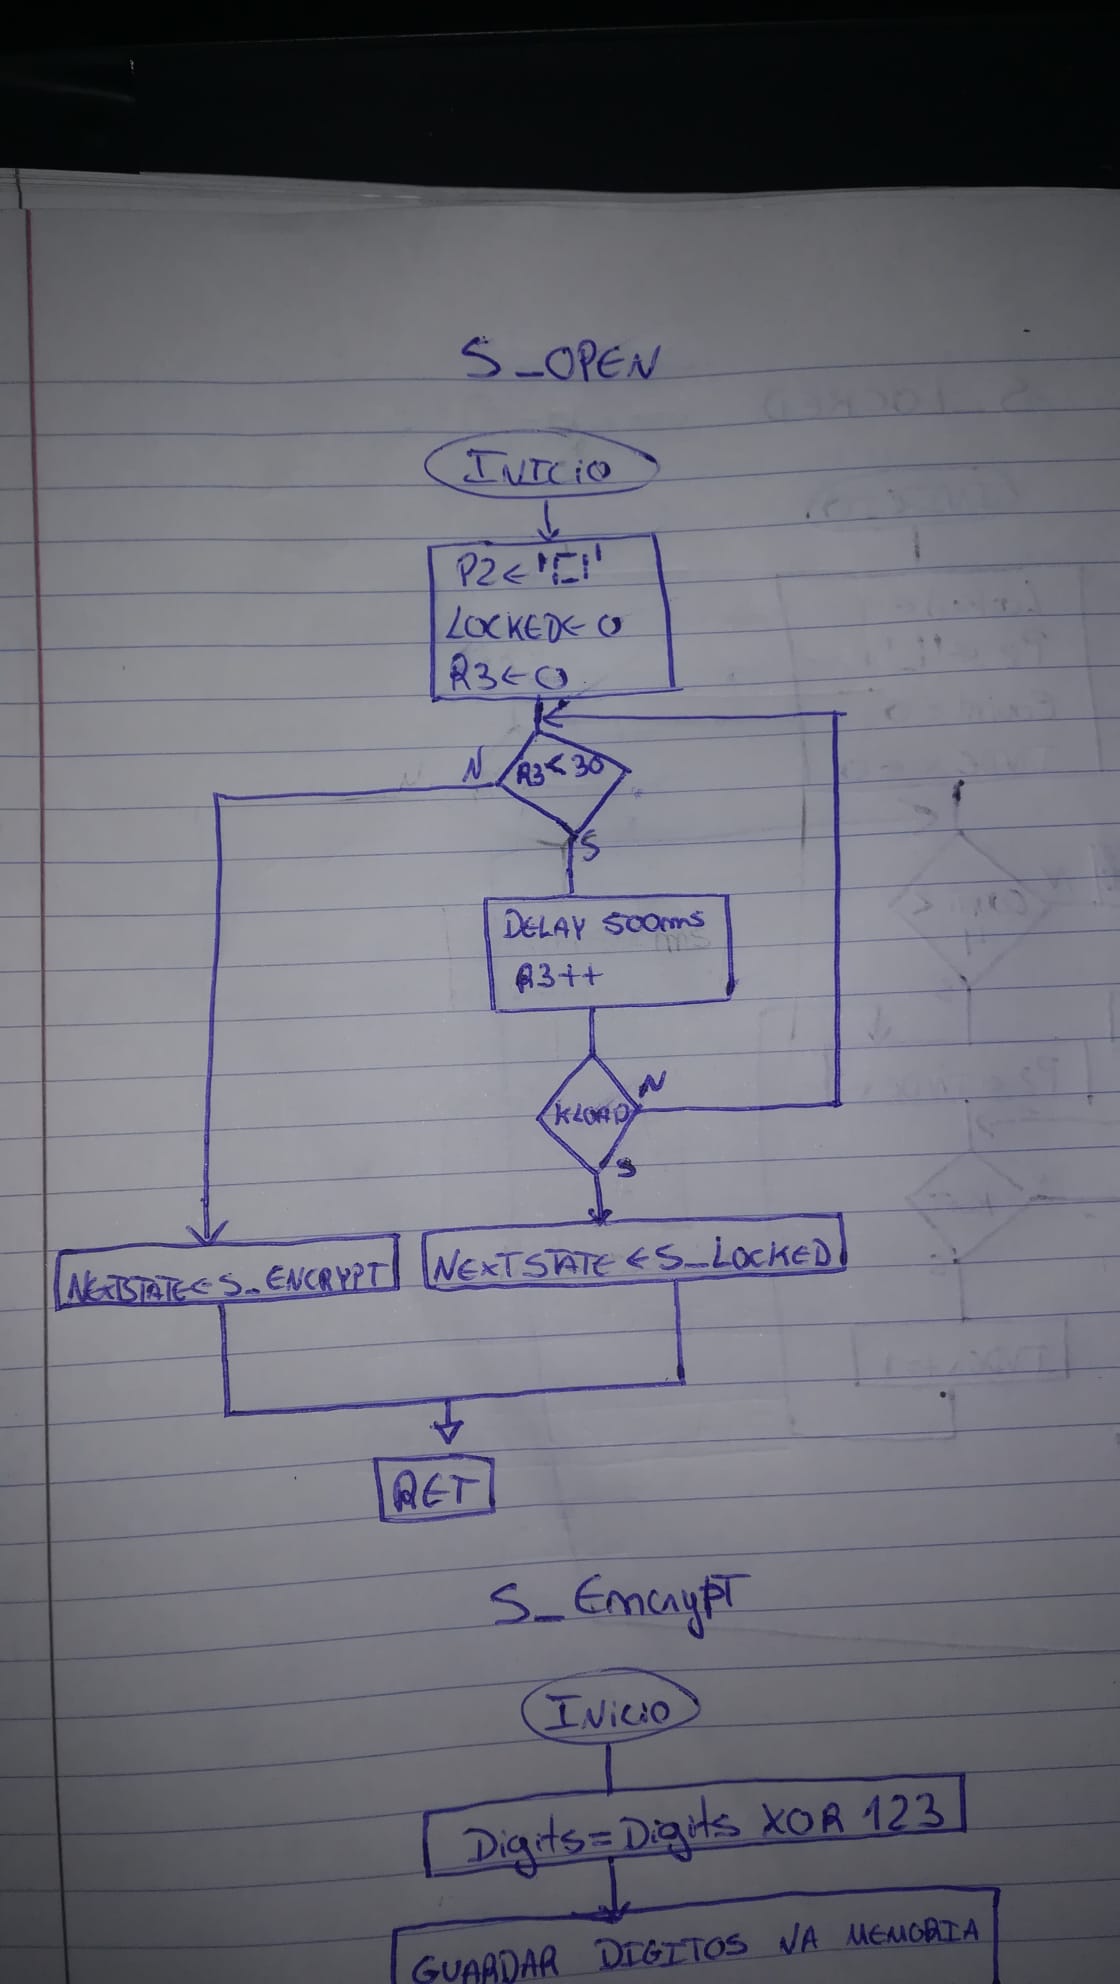 S_OPEN
INICIO
P2 ← '
LOCKED ← 0
R3 ← 0
R3 < 30
N
S
DELAY 500ms
R3++
KLOAD
N
S
NEXTSTATE ← S_ENCRYPT
NEXTSTATE ← S_LOCKED
RET
S_Emcrypt
INicio
Digits = Digits XOR 123
GUARDAR DIGITOS NA MEMORIA